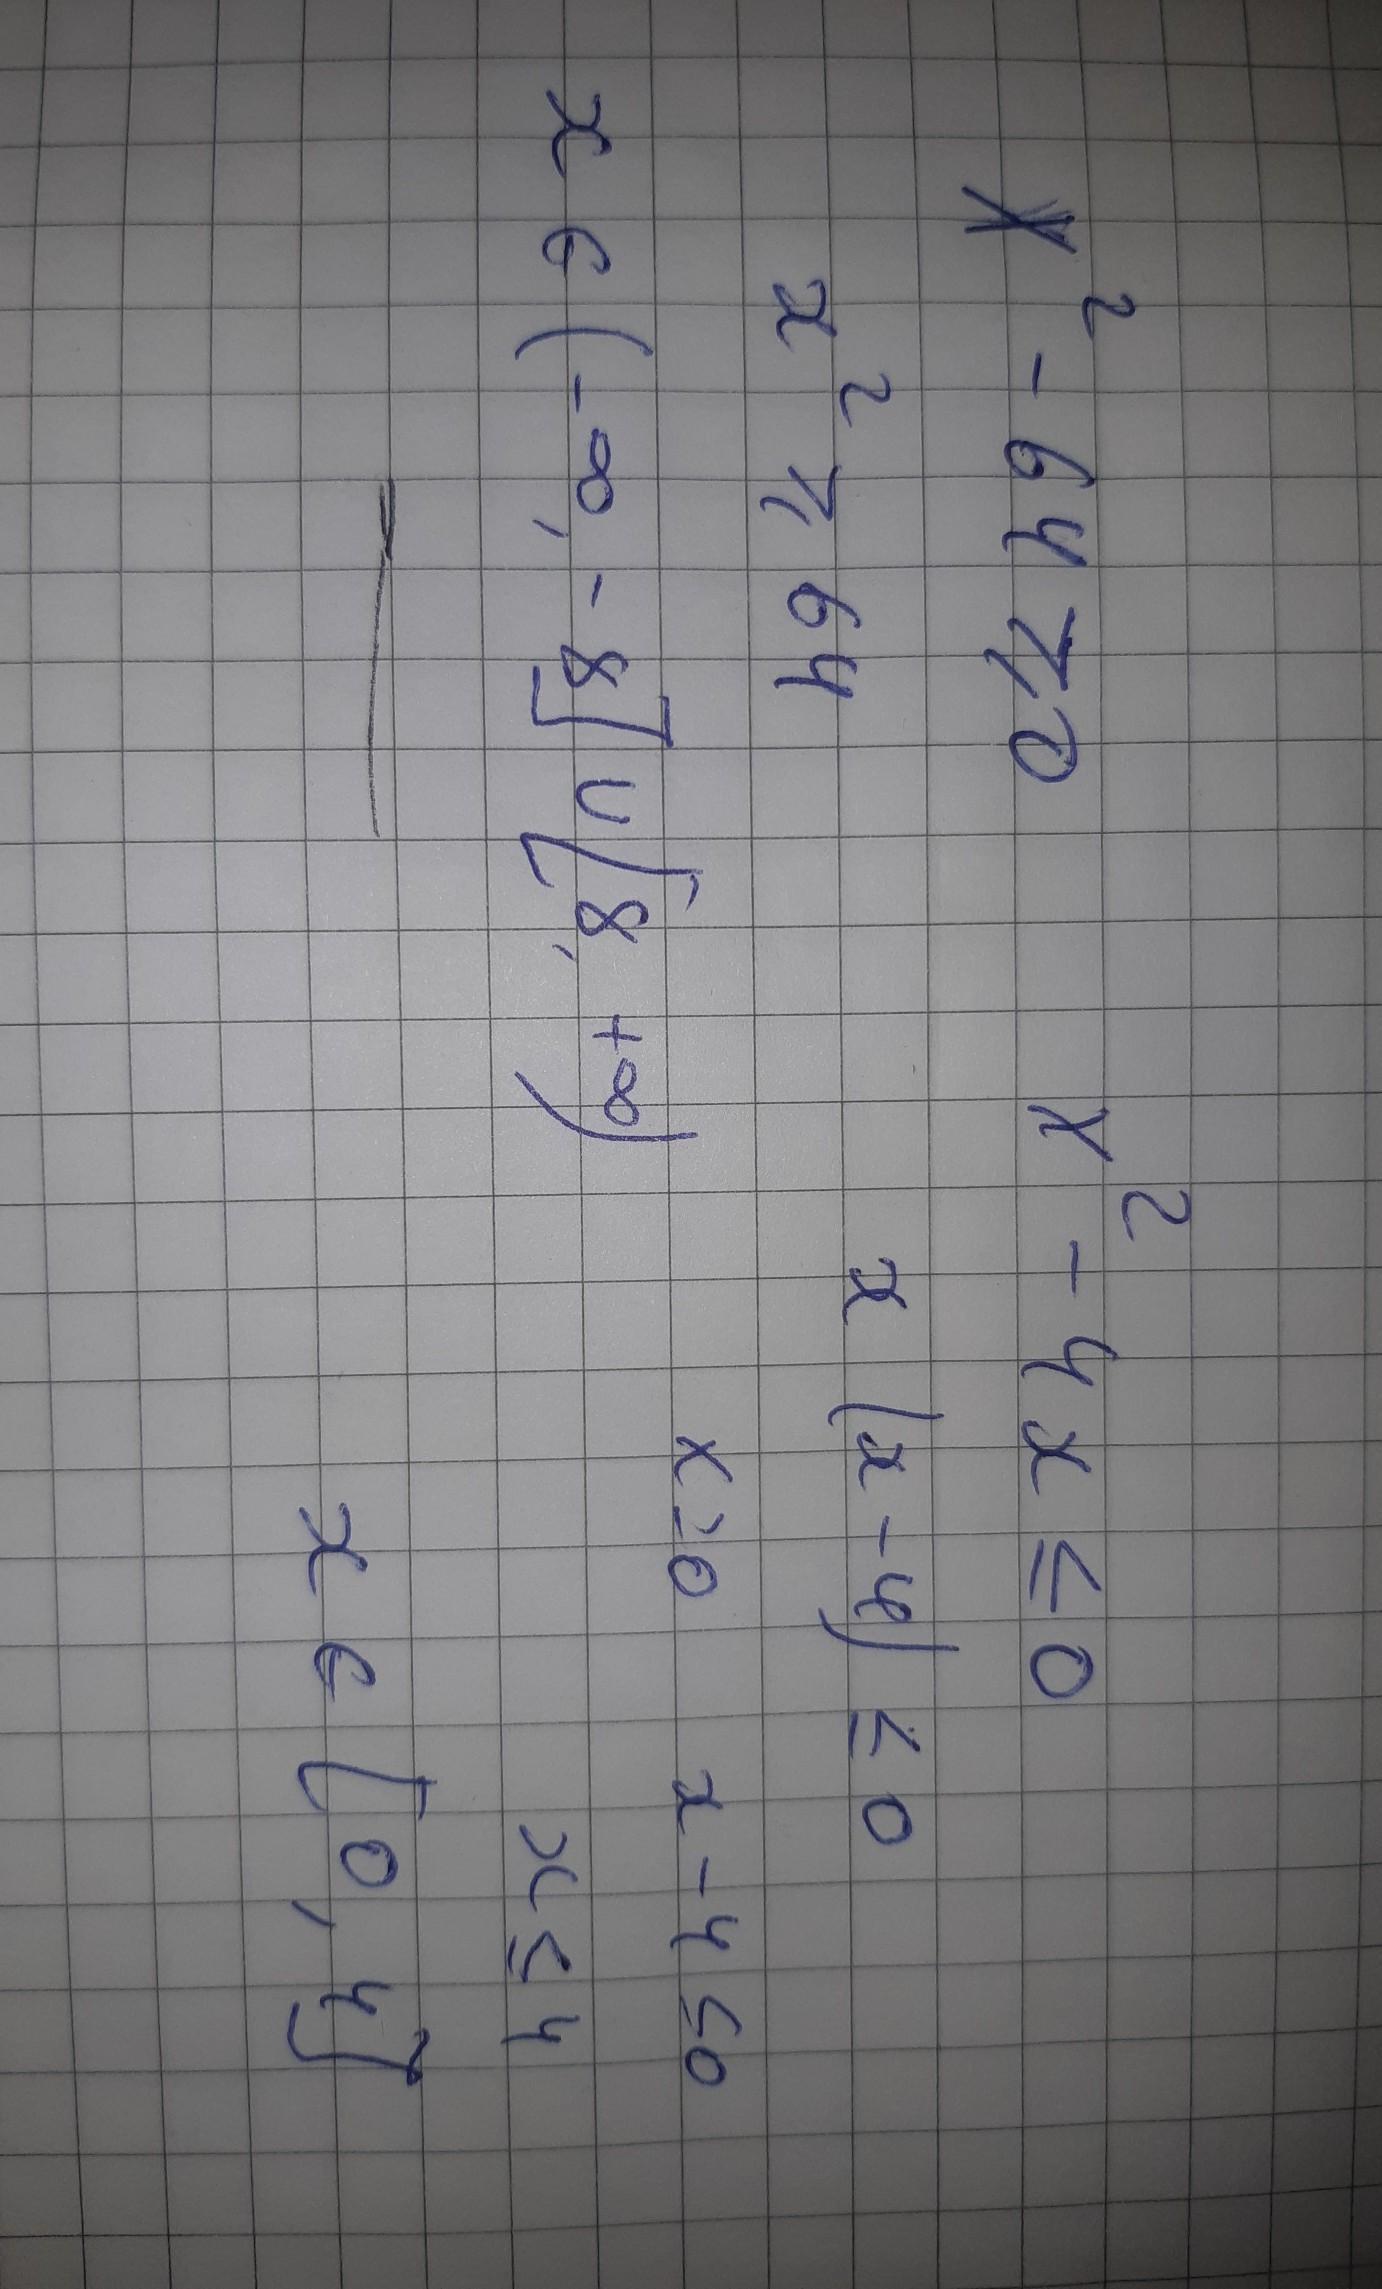 x² - 64 ≥ 0
x² ≥ 64
x ∈ (-∞, -8] ∪ [8, +∞)
x² - 4x ≤ 0
x (x - 4) ≤ 0
x ≥ 0 x - 4 ≤ 0
x ≤ 4
x ∈ [0, 4]